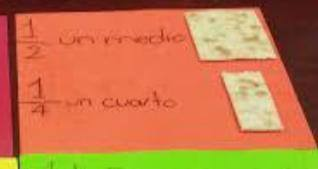 1/2 un medio
1/4 un cuarto